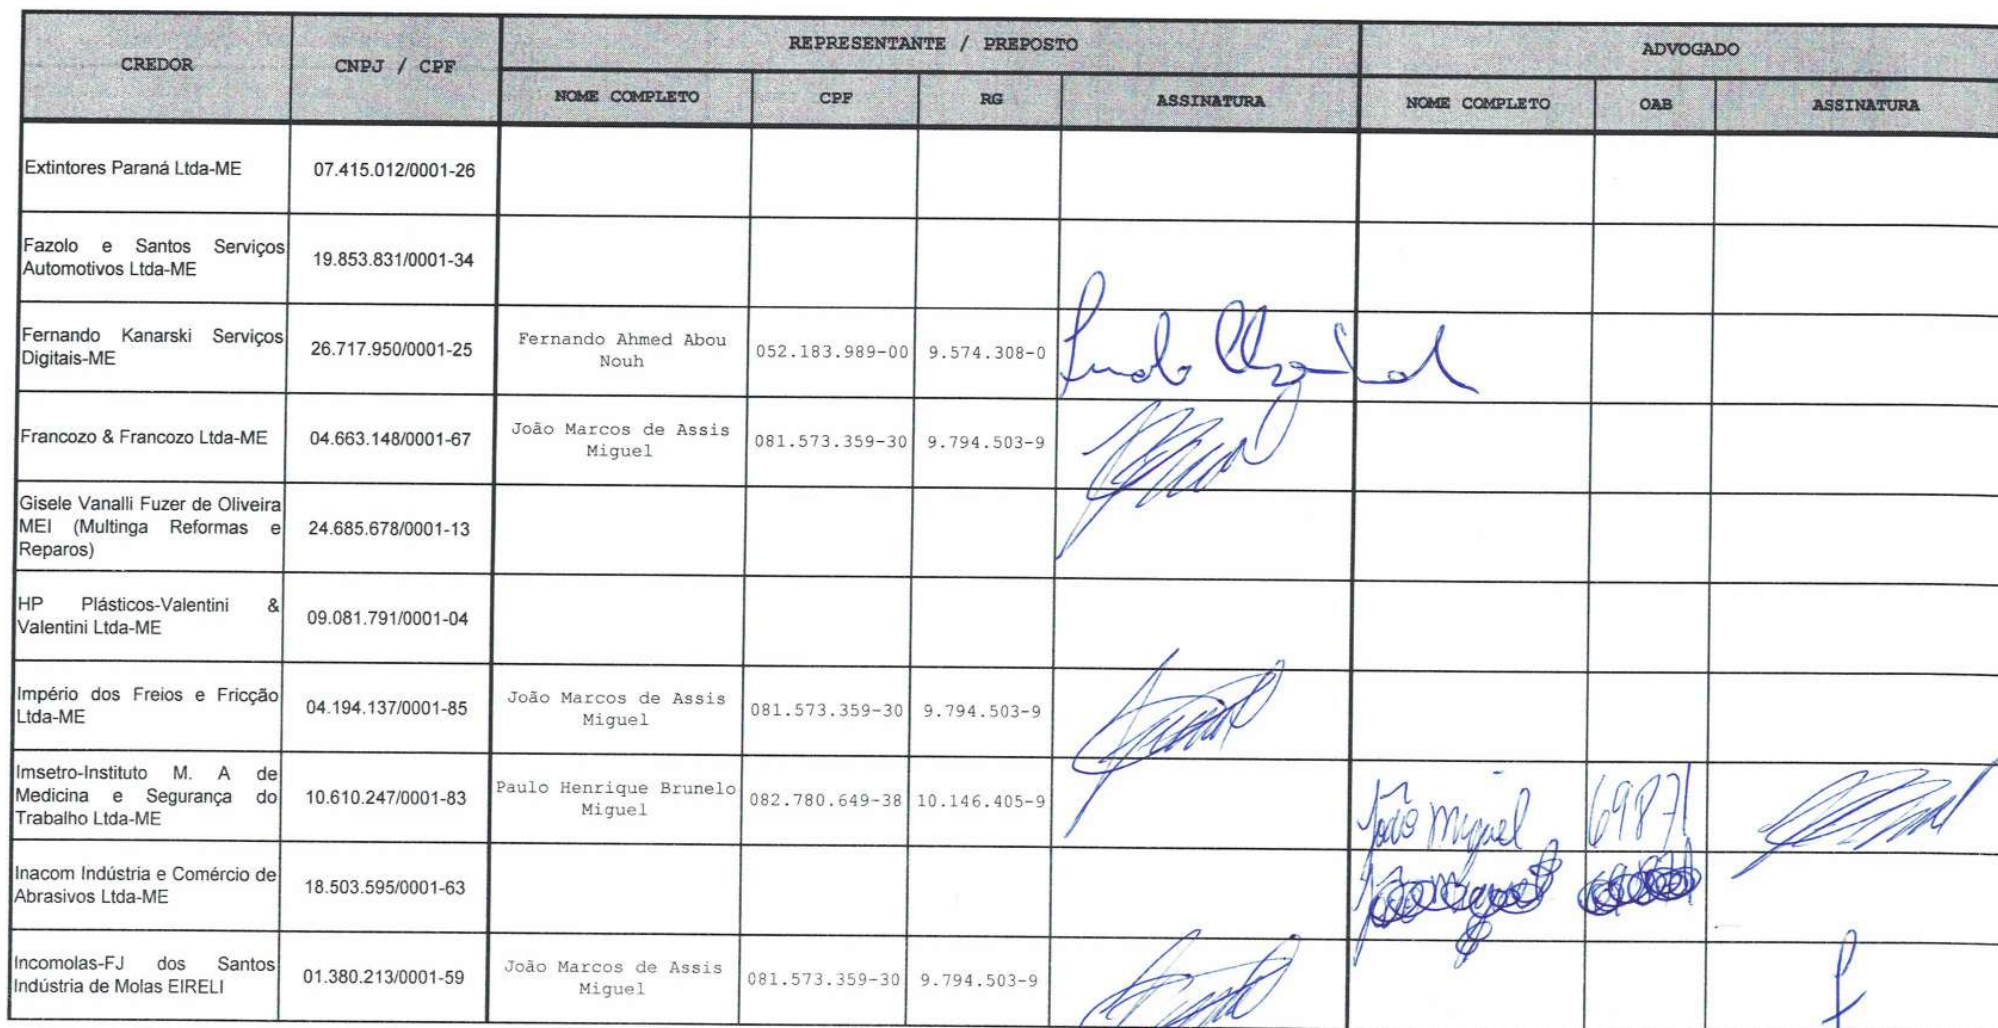 CREDOR
CNPJ / CPF
REPRESENTANTE / PREPOSTO
ADVOGADO
NOME COMPLETO
CPF
RG
ASSINATURA
NOME COMPLETO
OAB
ASSINATURA
Extintores Paraná Ltda-ME
07.415.012/0001-26
Fazolo e Santos Serviços
Automotivos Ltda-ME
19.853.831/0001-34
Fernando Kanarski Serviços
Digitais-ME
26.717.950/0001-25
Fernando Ahmed Abou
Nouh
052.183.989-00
9.574.308-0
Francozo & Francozo Ltda-ME
04.663.148/0001-67
João Marcos de Assis
Miguel
081.573.359-30
9.794.503-9
Gisele Vanalli Fuzer de Oliveira
MEI (Multinga Reformas e
Reparos)
24.685.678/0001-13
HP Plásticos-Valentini &
Valentini Ltda-ME
09.081.791/0001-04
Império dos Freios e Fricção
Ltda-ME
04.194.137/0001-85
João Marcos de Assis
Miguel
081.573.359-30
9.794.503-9
Imsetro-Instituto M. A de
Medicina e Segurança do
Trabalho Ltda-ME
10.610.247/0001-83
Paulo Henrique Brunelo
Miguel
082.780.649-38
10.146.405-9
João Miguel
69871
Inacom Indústria e Comércio de
Abrasivos Ltda-ME
18.503.595/0001-63
Incomolas-FJ dos Santos
Indústria de Molas EIRELI
01.380.213/0001-59
João Marcos de Assis
Miguel
081.573.359-30
9.794.503-9